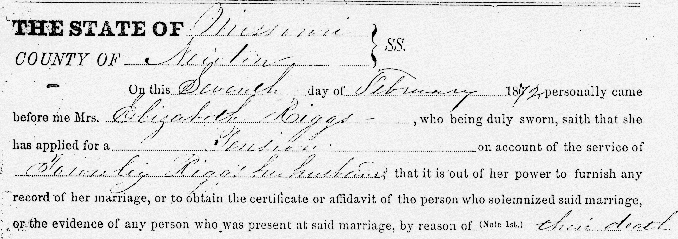 THE STATE OF Missouri
COUNTY OF Newton } SS.
On this Seventh day of February 1872 personally came
before me Mrs. Elizabeth Riggs , who being duly sworn, saith that she
has applied for a Pension on account of the service of
Riggs her husband that it is out of her power to furnish any
record of her marriage, or to obtain the certificate or affidavit of the person who solemnized said marriage,
or the evidence of any person who was present at said marriage, by reason of (Note 1st.) their death